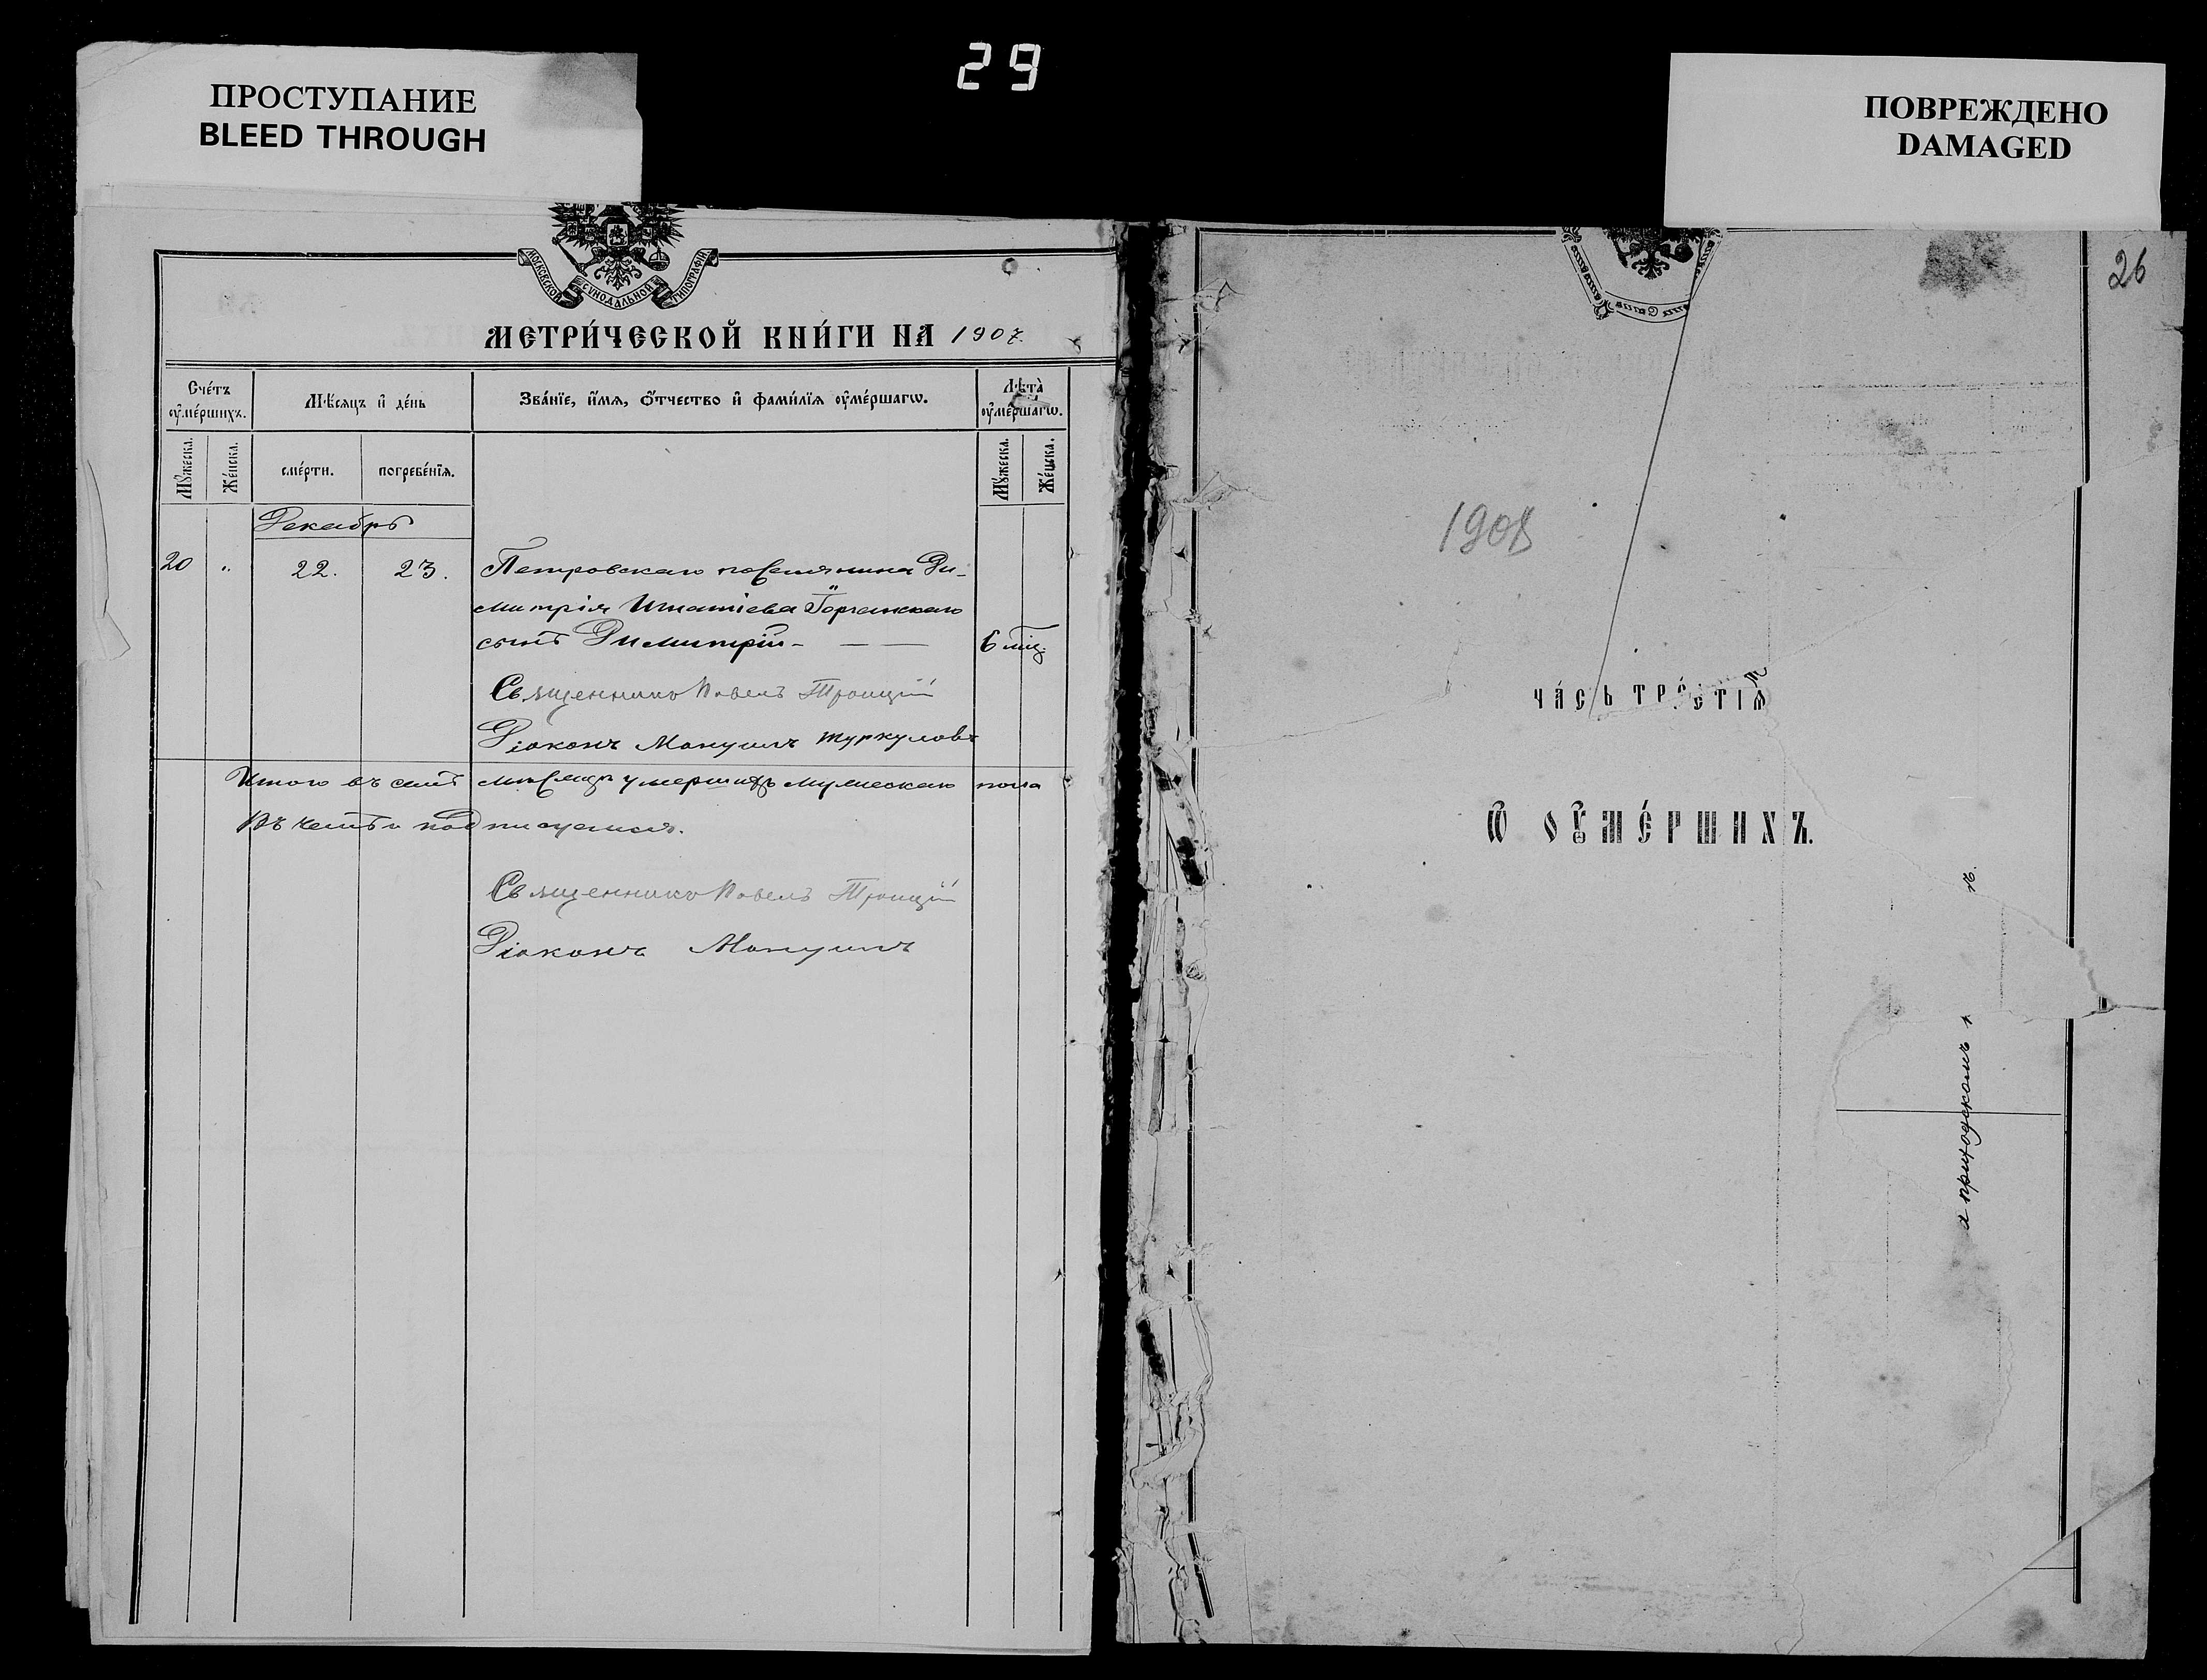 29
ПРОСТУПАНИЕ
BLEED THROUGH
ПОВРЕЖДЕНО
DAMAGED
МОСКОВСКОЙ СѴНОДАЛЬНОЙ ТИПОГРАФІИ
МЕТРИ́ЧЕСКОЙ КНИ́ГИ НА 1907
Сче́тъ ᲂу҆ме́ршихъ.
Мѣ́сяцъ и҆ де́нь
Зва́нїе, и҆́мѧ, ѻ҆́тчество и҆ фами́лїѧ ᲂу҆ме́ршагѡ.
Лѣ́та ᲂу҆ме́ршагѡ.
Мꙋ́жеска. Же́нска. сме́рти. погребе́нїѧ. Мꙋ́жеска. Же́нска.
Декабрь
20 " 22. 23. Петровскаго поселянина Ди-
митрія Игнатіева
сынъ Димитрій - — — 6 мѣц.
Священникъ Павелъ Троицкій
Діаконъ Мануилъ Туркуловъ
Итого въ семъ мѣсяцѣ умершихъ мужескаго пола
подписуемся.
Священникъ Павелъ Троицкій
Діаконъ Мануилъ
26
1908
ЧА́СЬ ТРЕ́ТІѦ
Ѡ҆ ᲂУ҆МЕ́РШИХЪ.
приходскомъ